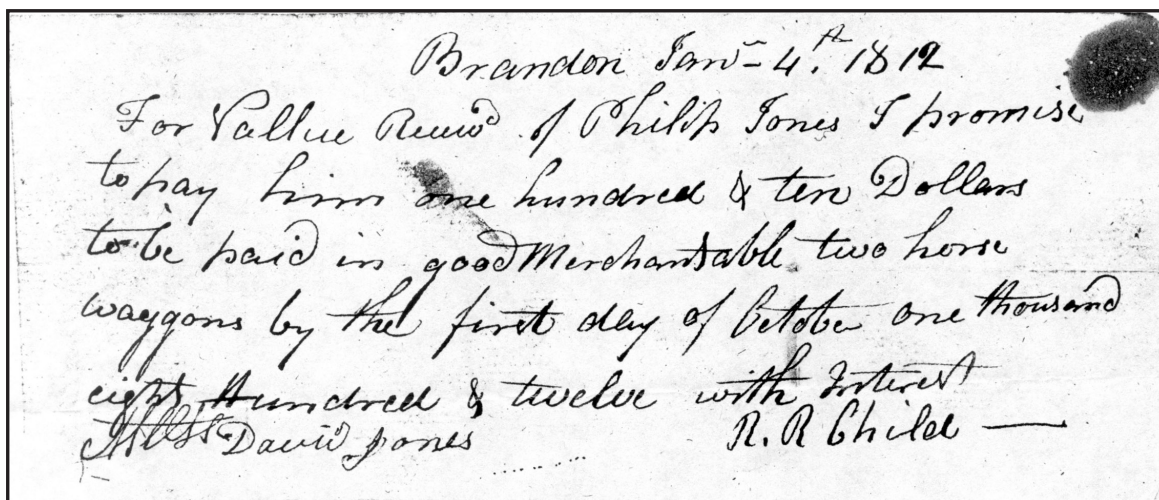 Brandon Jany 4th. 1812
For Vallue Recivd of Philip Jones I promise
to pay him one hundred & ten Dollars
to be paid in good Merchantable two horse
waggons by the first day of October one thousand
eight Hundred & twelve with Interest
Attest David Jones R. R Child —